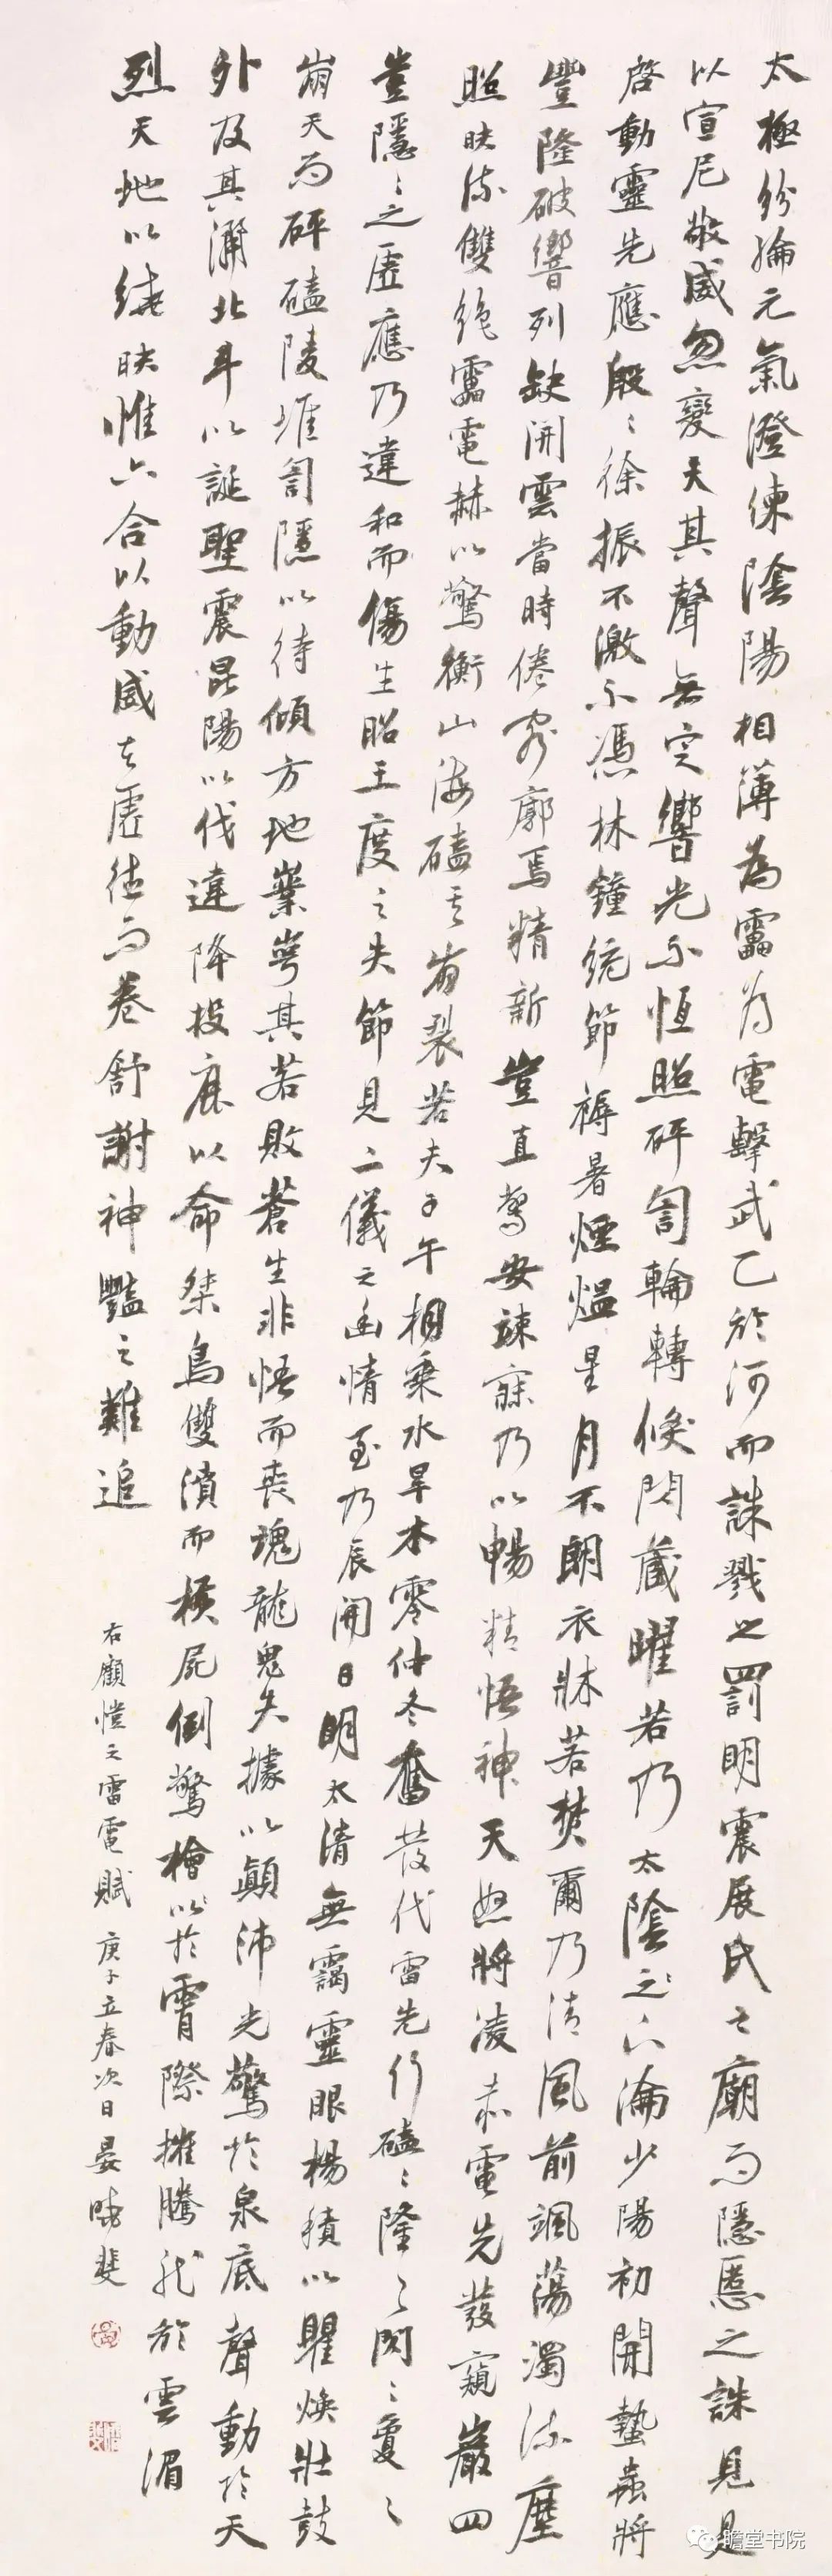 太極紛綸元氣澄練陰陽相薄為靁為電擊武乙於河而誅戮之罰明震展氏之廟而隱慝之誅見是
以宣尼敬威忽變夫其聲無定響光不恆照砰訇輪轉倏閃藏曜若乃太陰之下淪少陽初開蟄蟲將
啓動靈先應殷〻徐振不激不馮林鐘統節褥暑煙煴星月不朗衣牀若焚爾乃清風前颯蕩濁流塵
豐隆破響列缺開雲當時倦容廓焉精新豈直驚安竦寐乃以暢精悟神天怒將凌赤電先發窺巖四
照映流雙絶靁電赫以驚衡山海磕其崩裂若夫子午相乘水旱木零仲冬奮發代雷先行磕〻隆〻閃〻夐〻
豈隱〻之虛應乃違和而傷生昭王度之失節見二儀之幽情至乃辰開日明太清無靄靈眼楊積以瞿煥壯鼓
崩天而砰磕陵堆訇隱以待傾方地業崿其若敗蒼生非悟而喪魂龍鬼失據以顛沛光驚於泉底聲動於天
外及其瀰北斗以誕聖震昆陽以伐違降投鹿以命桀島雙潰而橫屍倒驚檜以於霄際摧騰龍於雲湄
烈天地以繞映惟六合以動威在虛德而卷舒謝神豔之難追
右顧愷之雷電賦 庚子立春次日晏曉斐
瞻堂书院